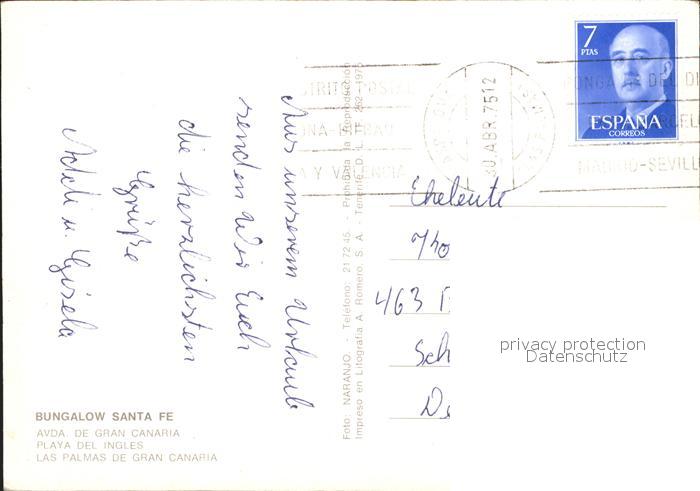 Aus unserem Urlaub
senden wir Euch
die herzlichsten
Grüße
Addi u. Gisela
BUNGALOW SANTA FE
AVDA. DE GRAN CANARIA
PLAYA DEL INGLES
LAS PALMAS DE GRAN CANARIA
Foto: NARANJO. - Teléfono: 21 72 45 - Prohibida la Reproducción
Impreso en Litografía A. Romero, S. A. - Tenerife D. L. TF. 252 - 1975
7
PTAS
ESPAÑA
CORREOS
30 ABR. 75 12
DISTRITO POSTAL
PONGA
DEL DI
Y VALENCIA
MADRID-SEVILL
Eheleute
463
Sch
privacy protection
Datenschutz